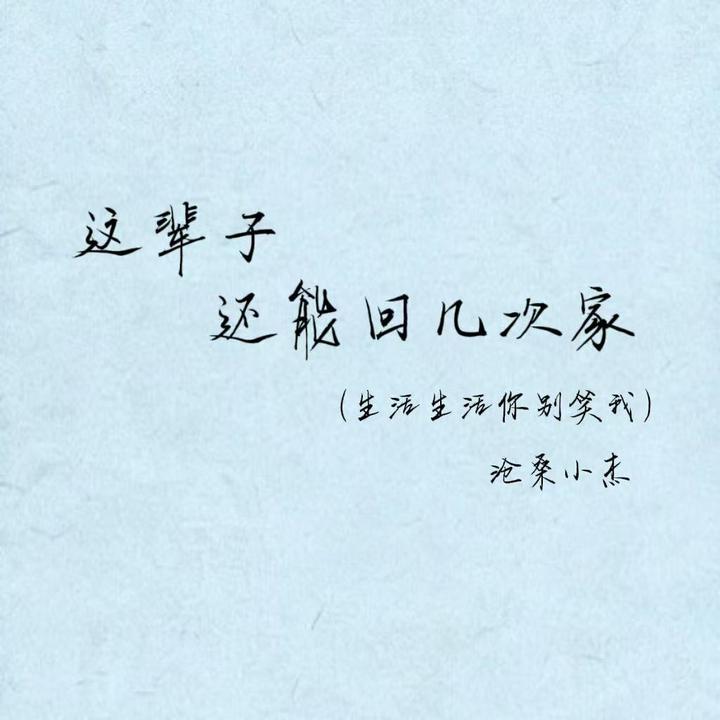 这辈子
还能回几次家
（生活生活你别笑我）
沧桑小杰